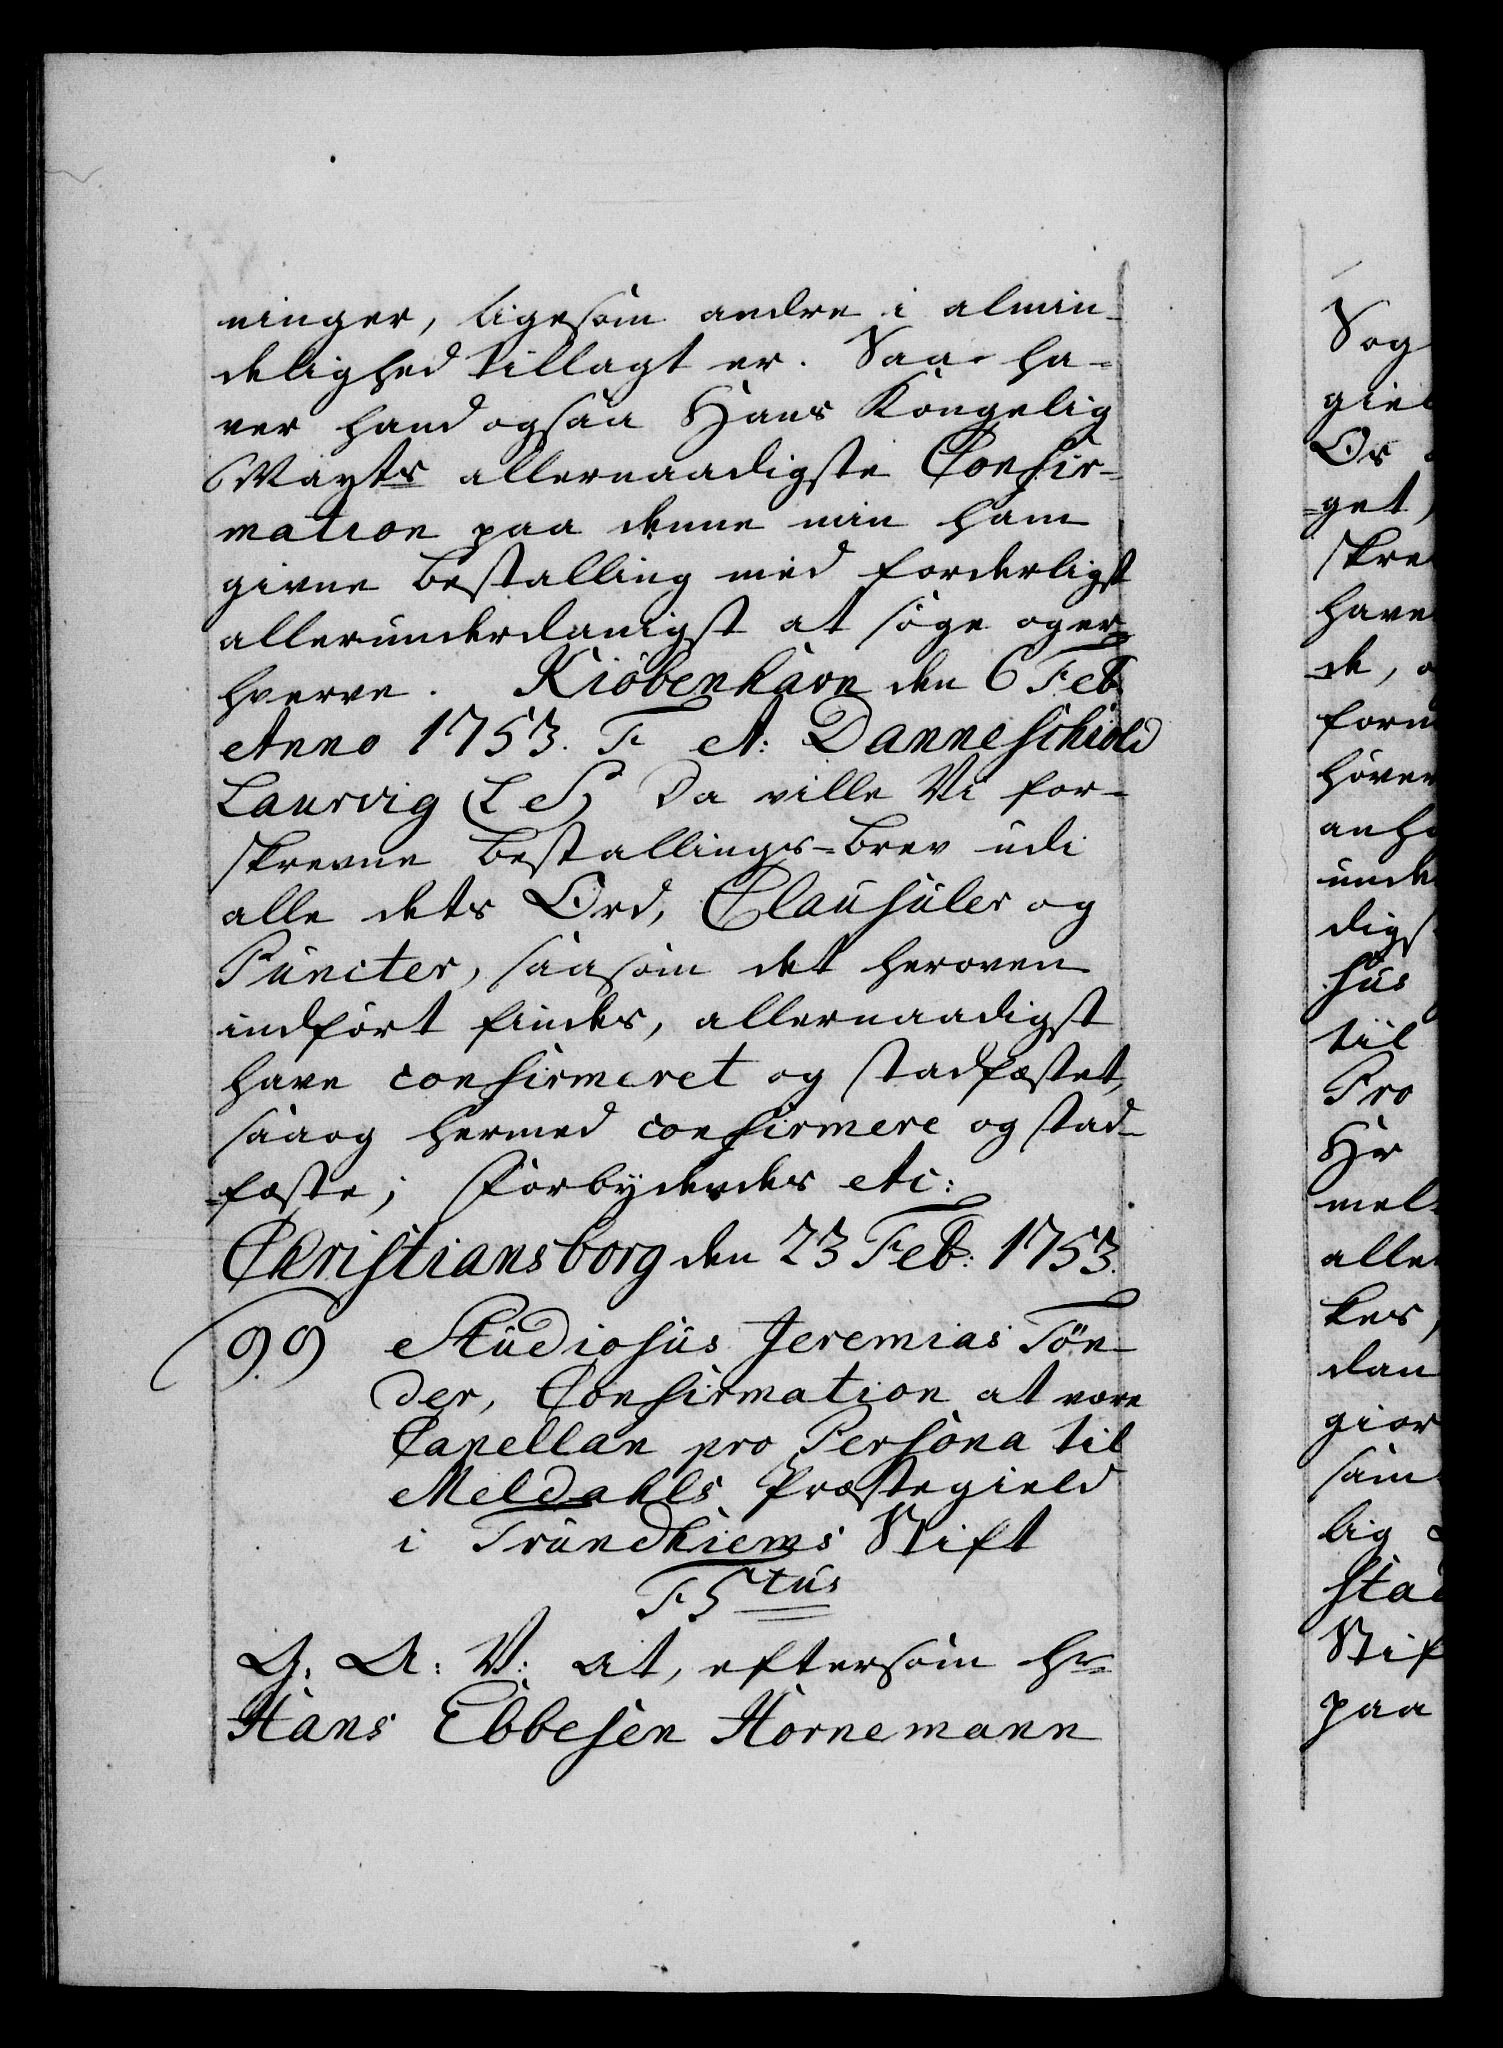 ninger, ligesom andre i almin-
delighed tillagt er. Saa ha-
ver hand ogsaa Hans Kongelig
Mayts allernaadigste Confir-
mation paa denne min ham
givne Bestalling med forderligst
allerunderdanigst at søge og er-
hverve. Kiøbenhavn den 6 Feb.
Anno 1753. F A: Danneschiold
Laurvig (L S) Da ville Vi for-
skrevne Bestallings-Brev udi
alle dets Ord, Clausuler og
Puncter, saasom det heroven
indført findes, allernaadigst
have confirmeret og stadfæstet,
saa og hermed confirmere og stad-
fæste; Forbydendes etc:
Christiansborg den 23 Feb: 1753.
99 Studiosus Jeremias Tøn-
der, Confirmation at være
Capellan pro Persona til
Meldahls Præstegield
i Trundhiems Stift
F 5tus
G. A: V: at, eftersom Hr
Hans Ebbesen Hornemann
Sog
giel
Os
get,
skre
have
de,
form
høver
anho
unde
digs
hus
til
Pro
Hr
mel
alle
kes,
dan
gior
sam
lig
stad
Stif
paa